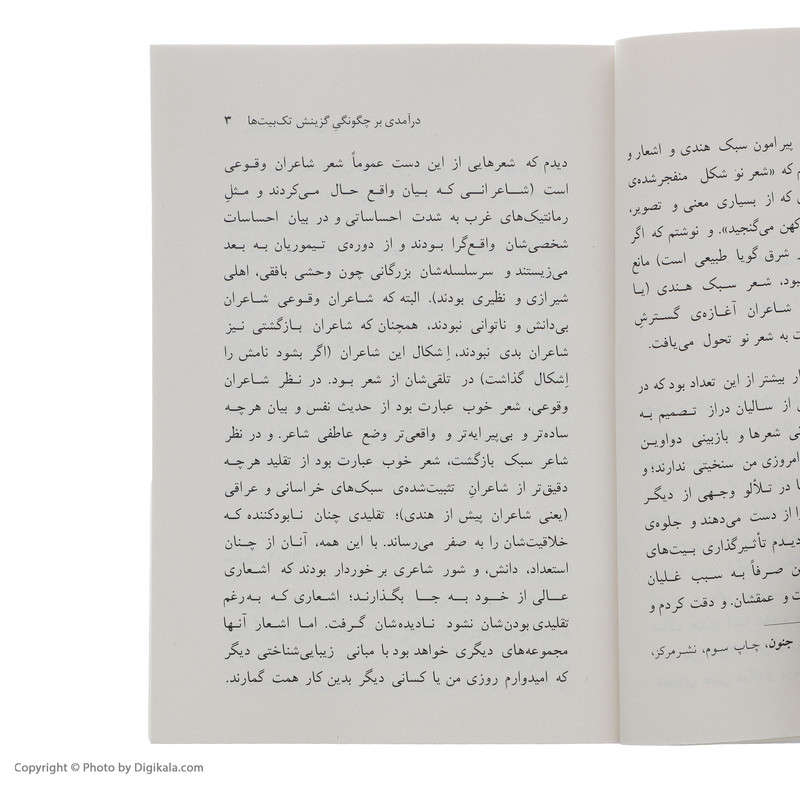 پیرامون سبک هندی و اشعار و
م که «شعر نو شکل منفجرشده‌ی
ی که از بسیاری معنی و تصویر،
کهن می‌گنجید». و نوشتم که اگر
ر شرق گویا طبیعی است) مانع
بود، شعر سبک هندی (یا
شاعران آغازه‌ی گسترش
ت به شعر نو تحول می‌یافت.
ار بیشتر از این تعداد بود که در
ی از سالیان دراز تصمیم به
نی شعرها و بازبینی دواوین
امروزی من سنخیتی ندارند؛ و
ا در تلألو وجهی از دیگر
را از دست می‌دهند و جلوه‌ی
دیدم تأثیرگذاری بیت‌های
ن صرفاً به سبب غلیان
ت و عمقشان. و دقت کردم و
جنون، چاپ سوم، نشرمرکز،
درآمدی بر چگونگیِ گزینش تک‌بیت‌ها ۳
دیدم که شعرهایی از این دست عموماً شعر شاعران وقوعی
است (شاعرانی که بیان واقع حال می‌کردند و مثلِ
رمانتیک‌های غرب به شدت احساساتی و در بیان احساسات
شخصی‌شان واقع‌گرا بودند و از دوره‌ی تیموریان به بعد
می‌زیستند و سرسلسله‌شان بزرگانی چون وحشی بافقی، اهلی
شیرازی و نظیری بودند). البته که شاعران وقوعی شاعران
بی‌دانش و ناتوانی نبودند، همچنان که شاعران بازگشتی نیز
شاعران بدی نبودند، اِشکال این شاعران (اگر بشود نامش را
اِشکال گذاشت) در تلقی‌شان از شعر بود. در نظر شاعران
وقوعی، شعر خوب عبارت بود از حدیث نفس و بیان هرچه
ساده‌تر و بی‌پیرایه‌تر و واقعی‌تر وضع عاطفی شاعر. و در نظر
شاعر سبک بازگشت، شعر خوب عبارت بود از تقلید هرچه
دقیق‌تر از شاعرانِ تثبیت‌شده‌ی سبک‌های خراسانی و عراقی
(یعنی شاعران پیش از هندی)؛ تقلیدی چنان نابودکننده که
خلاقیت‌شان را به صفر می‌رساند. با این همه، آنان از چنان
استعداد، دانش، و شور شاعری برخوردار بودند که اشعاری
عالی از خود به جا بگذارند؛ اشعاری که به‌رغم
تقلیدی بودن‌شان نشود نادیده‌شان گرفت. اما اشعار آنها
مجموعه‌های دیگری خواهد بود با مبانی زیبایی‌شناختی دیگر
که امیدوارم روزی من یا کسانی دیگر بدین کار همت گمارند.
Copyright © Photo by Digikala.com